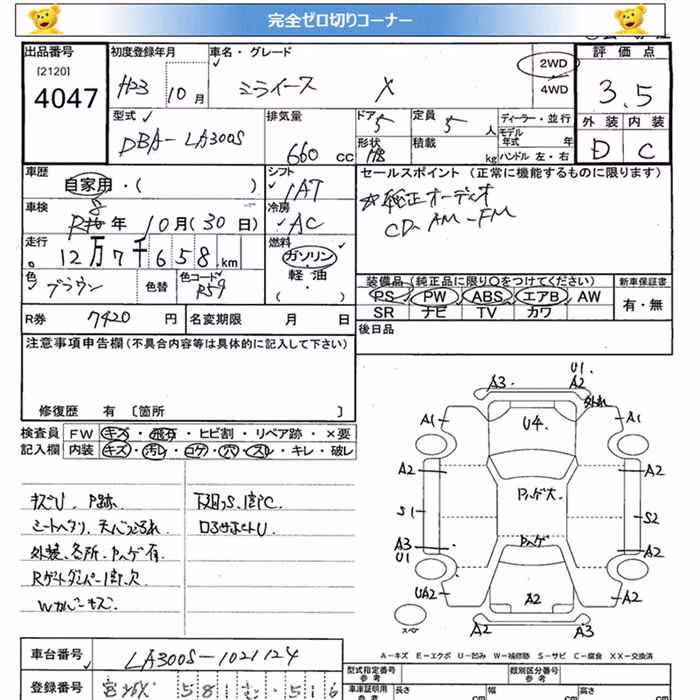 完全ゼロ切りコーナー
出品番号
[2120]
4047
初度登録年月
H23 10月
車名・グレード
ミライース X
2WD
4WD
評価点
3.5
外装 内装
D C
型式
DBA-LA300S
排気量
660 cc
ドア
5
形状
HB
定員
5 人
積載
kg
ディーラー・並行
モデル
年式 年
ハンドル 左・右
車歴
自家用・( )
シフト
IAT
セールスポイント (正常に機能するものに限ります)
純正オーディオ
CD-AM-FM
車検
R8年 10月(30日)
冷房
AC
走行
12万7千658km
燃料
ガソリン
軽油
( )
色
ブラウン
色替
色コード
R59
装備品 (純正品に限り○をつけてください)
PS PW ABS エアB AW
SR ナビ TV カワ
新車保証書
有・無
R券 7420 円
名変期限 月 日
後日品
注意事項申告欄 (不具合内容等は具体的に記入して下さい)
修復歴 有 〔箇所 〕
検査員
記入欄
FW キズ・飛石・ヒビ割・リペア跡・×要
内装 キズ・汚レ・コゲ・穴・スレ・キレ・破レ
キズU、P跡
シートヘタリ、天バリ汚れ
外装、各所、Pハゲ有
Rゲートダンパー1部欠
下廻りS、1部C
ロアサポートU
A3 U1
A2
外れ
A1 U4 A1
A2 A2
Pハゲ大
S1 S2
Pハゲ
A3
U1 A2
UA2 A2 A2
スペア
A2 A3
A-キズ E-エクボ U-凹み W-補修跡 S-サビ C-腐食 XX-交換済
車台番号 LA300S-1021124
登録番号 宮城 581 516
型式指定番号
参考
類別区分番号
参考
車庫証明用
参考
長さ
幅
高さ